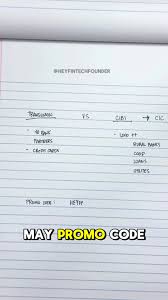 @HEYFINTECHFOUNDER
TRANSUNION VS CIBI → CIC
- 10 BANK
PARTNERS
- CREDIT CHECK
- 1,000 ++
RURAL BANKS
COOP
LOANS
UTILITIES
PROMO CODE: HEYFF
MAY PROMO CODE